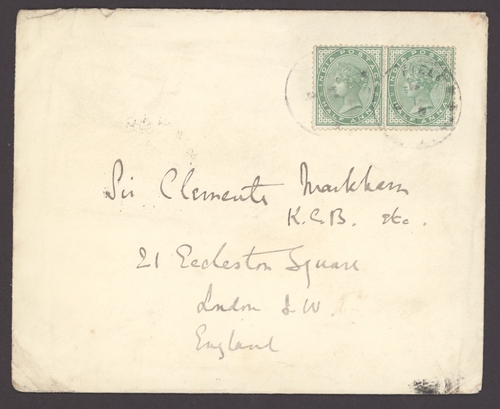 INDIA POSTAGE INDIA POSTAGE
Sir Clements Markham
K.C.B. etc.
21 Eccleston Square
London S.W.
England